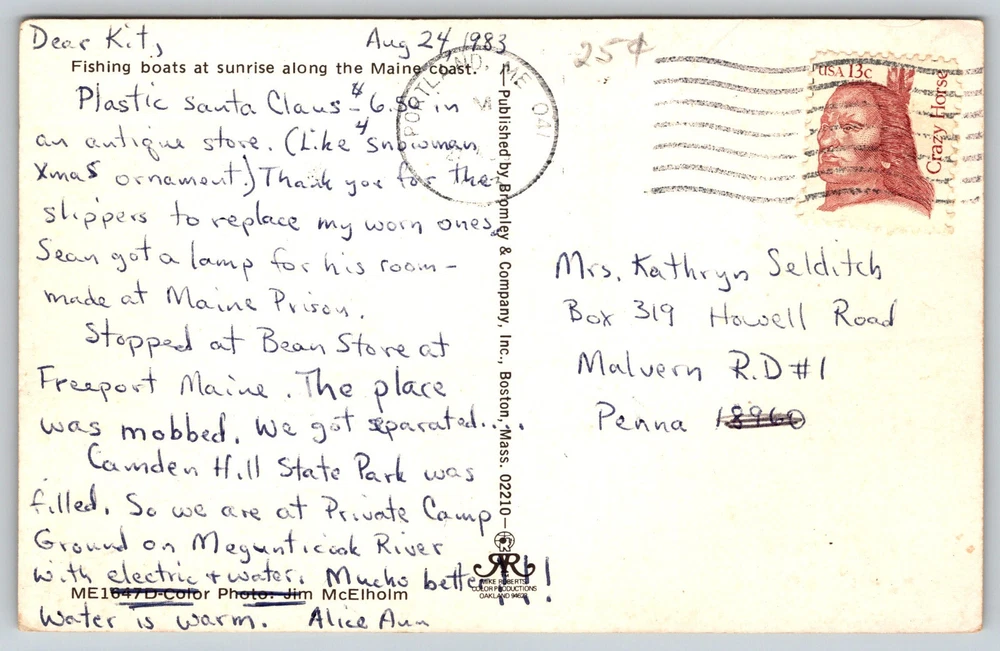 Dear Kit,
Aug 24 1983
Fishing boats at sunrise along the Maine coast.
Plastic santa Claus - $6.50 in
an antique store. (Like 4 snowman
Xmas ornament.) Thank you for the
slippers to replace my worn ones.
Sean got a lamp for his room -
made at Maine Prison.
Stopped at Bean Store at
Freeport Maine. The place
was mobbed. We got separated....
Camden Hill State Park was
filled. So we are at Private Camp
Ground on Megunticook River
with electric + water. Mucho better!!!
ME1647D-Color Photo: Jim McElholm
Water is warm. Alice Ann
Published by Bromley & Company, Inc., Boston, Mass. 02210
MIKE ROBERTS
COLOR PRODUCTIONS
OAKLAND
PORTLAND, ME 041
25¢
USA 13c
Crazy Horse
Mrs. Kathryn Selditch
Box 319 Howell Road
Malvern R.D #1
Penna 18960